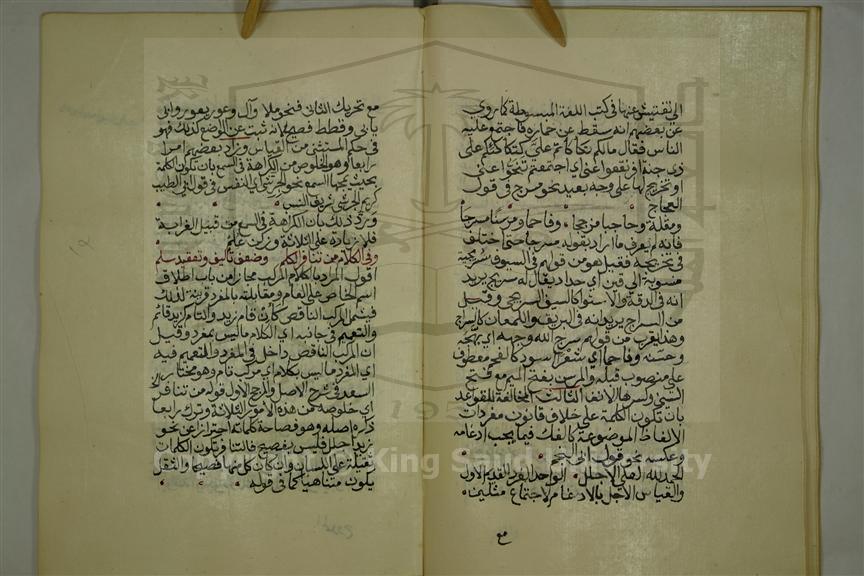 الى تفتيش عنها في كتب اللغة المبسوطة كما روي
عن بعضهم انه سقط عن حماره فاجتمع عليه
الناس فقال مالكم تكاكاتم علي كتكاكئكم على
ذي جنة افرنقعوا عني اي اجتمعتم تنحوا عني
او تخريج لها على وجه بعيد نحو مسرج في قول
العجاج
ومقلة وحاجبا مزججا وفاحما ومرسنا مسرجا
فانه لم يعرف ما اراد بقوله مسرجا حتى اختلف
في تخريجه فقيل هو من قولهم في السيوف سريجية
منسوبة الى قين اي حداد يقال له سريج يريد
انه في الدقة والاستوا كالسيف السريجي وقيل
من السراج يريد انه في البريق واللمعان كالسراج
وهذا يقرب من قولهم سرج الله وجهه اي بهجه
وحسنه وفاحما اي شعرا اسود كالفحم معطوف
على منصوب قبله والمرسن بفتح الميم مع فتح
السين وكسرها الانف الثالث المخالفة للقواعد
بان تكون الكلمة على خلاف قانون مفردات
الالفاظ الموضوعة كالفك فيما يجب ادغامه
وعكسه نحو قول ابي النجم
الحمد لله العلي الاجلل الواحد الفرد القديم الاول
والقياس الاجل بالادغام لاجتماع مثلين
مع
مع تحريك الثاني فنحو ملا وآل وعور يعور وابى
يابى وقطط فصيح لانه ثبت عن الوضع كذلك فهو
في حكم المستثنى من القياس وزاد بعضهم امرا
رابعا وهو الخلوص من الكراهة في السمع بان تكون الكلمة
بحيث يمجها السمع نحو الجرشى اي النفس في قول ابي الطيب
كريم الجرشى شريف النسب
ورد ذلك بان الكراهة في السمع من قبيل الغرابة
فلا زيادة على الثلاثة
وفي الكلام من تنافر الكلم وضعف تاليف وتعقيد سلم
اقول المراد بالكلام المركب مجازا من باب اطلاق
اسم الخاص على العام ومقابلته بالمفرد قرينة لذلك
فيشمل المركب الناقص كان قام زيد والتام كزيد قائم
والتعميم في جانبه اي الكلام ما ليس بمفرد وقيل
ان المركب الناقص داخل في المفرد والتعميم فيه
اي المفرد ما ليس بكلام اي مركب تام وهو مختار
السعد في شرح الاصل والمرجح الاول قوله من تنافر
اي خلوصه من هذه الامور الثلاثة وترك رابعا
ذكره اصله وهو فصاحة كلماته احترازا عن نحو
زيد اجلل فليس بفصيح فالتنافر تكون الكلمات
ثقيلة على اللسان وان كان كل منها فصيحا والثقل
يكون متناهيا كما في قوله
King Saud University